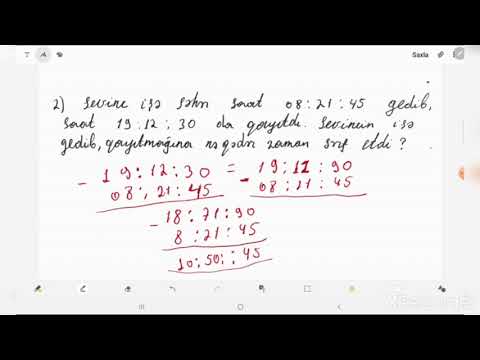 Saxla
2) Sevinc işə səhər saat 08:21:45 gedib,
saat 19:12:30 da qayıtdı. Sevincin işə
gedib, qayıtmağına nə qədər zaman sərf etdi?
- 19:12:30 = 19:11:90
08:21:45 - 08:21:45
- 18:71:90
8:21:45
10:50:45